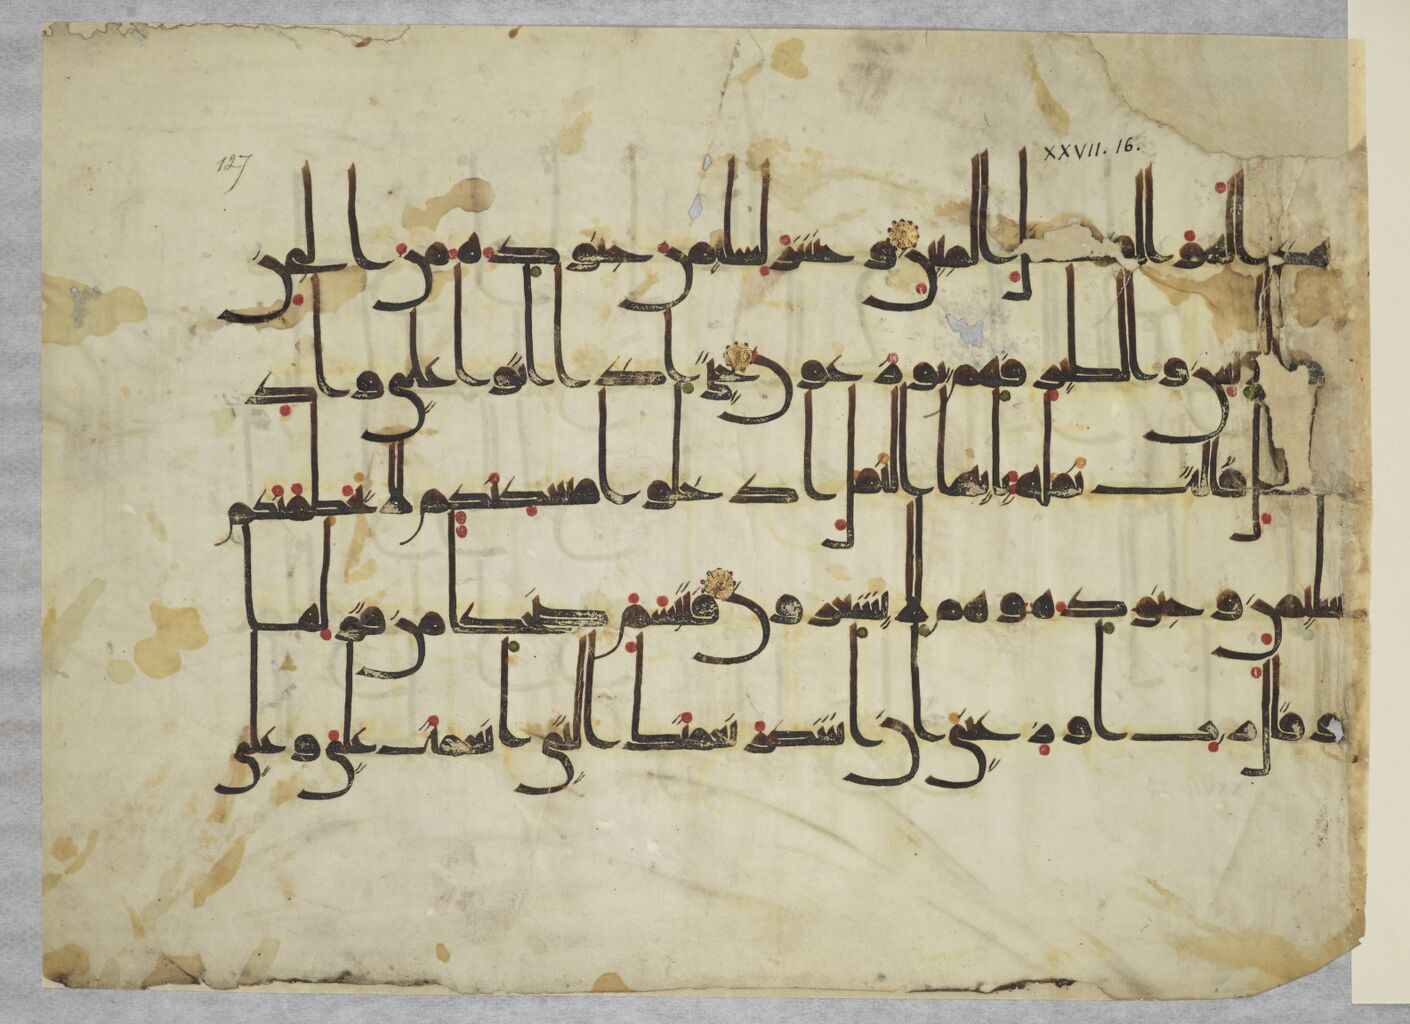 127
XXVII. 16.
هذا لهو الفضل المبين وحشر لسليمن جنوده من الجن
والإنس والطير فهم يوزعون حتى إذا أتوا على واد
النمل قالت نملة يأيها النمل ادخلوا مسكنكم لا يحطمنكم
سليمن وجنوده وهم لا يشعرون فتبسم ضحكا من قولها
وقال رب أوزعني أن أشكر نعمتك التي أنعمت علي وعلى